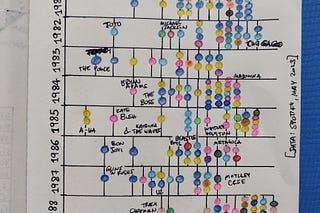 1982
TOTO
MICHAEL
JACKSON
CHICAGO
1983
THE POLICE
1984
MADONNA
BRYAN
ADAMS
THE
BOSS
1985
A-HA
KATE
BUSH
KATRINA
& THE WAVES
WHITNEY
HOUSTON
1986
BON
JOVI
BEASTIE
BOYS
METALLICA
1987
GUNS
N' ROSES
U2
MOTLEY
CRÜE
88
TRACY
CHAPMAN
[DATA: SPOTIFY, MAY 2023]